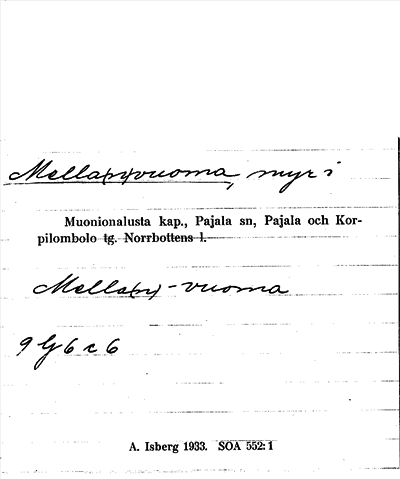 Mella(n)vuoma, myr i
Muonionalusta kap., Pajala sn, Pajala och Kor-
pilombolo tg. Norrbottens l.
Mella(n)-vuoma
9 G 6 c 6
A. Isberg 1933. SOA 552:1